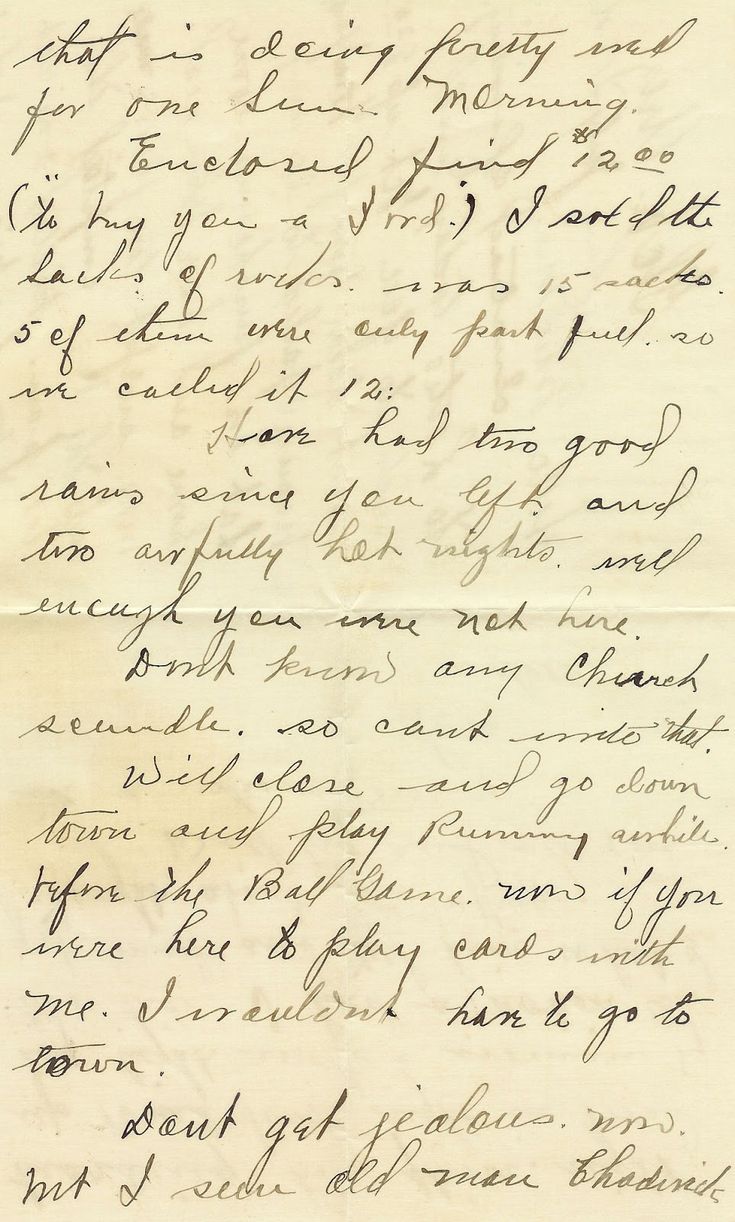 that is doing pretty well
for one Sun. Morning.
Enclosed find $12.00
("to buy you a Ford.") I sold the
sacks of rocks. was 15 sacks.
5 of them were only part full. so
we called it 12:
Have had two good
rains since you left. and
two awfully hot nights. well
enough you were not here.
Dont know any Church
scandle. so cant write that.
Will close and go down
town and play Rummy awhile.
before the Ball Game. now if you
were here to play cards with
me. I wouldnt have to go to
town.
Dont get jealous. now.
but I seen old man Chadwick